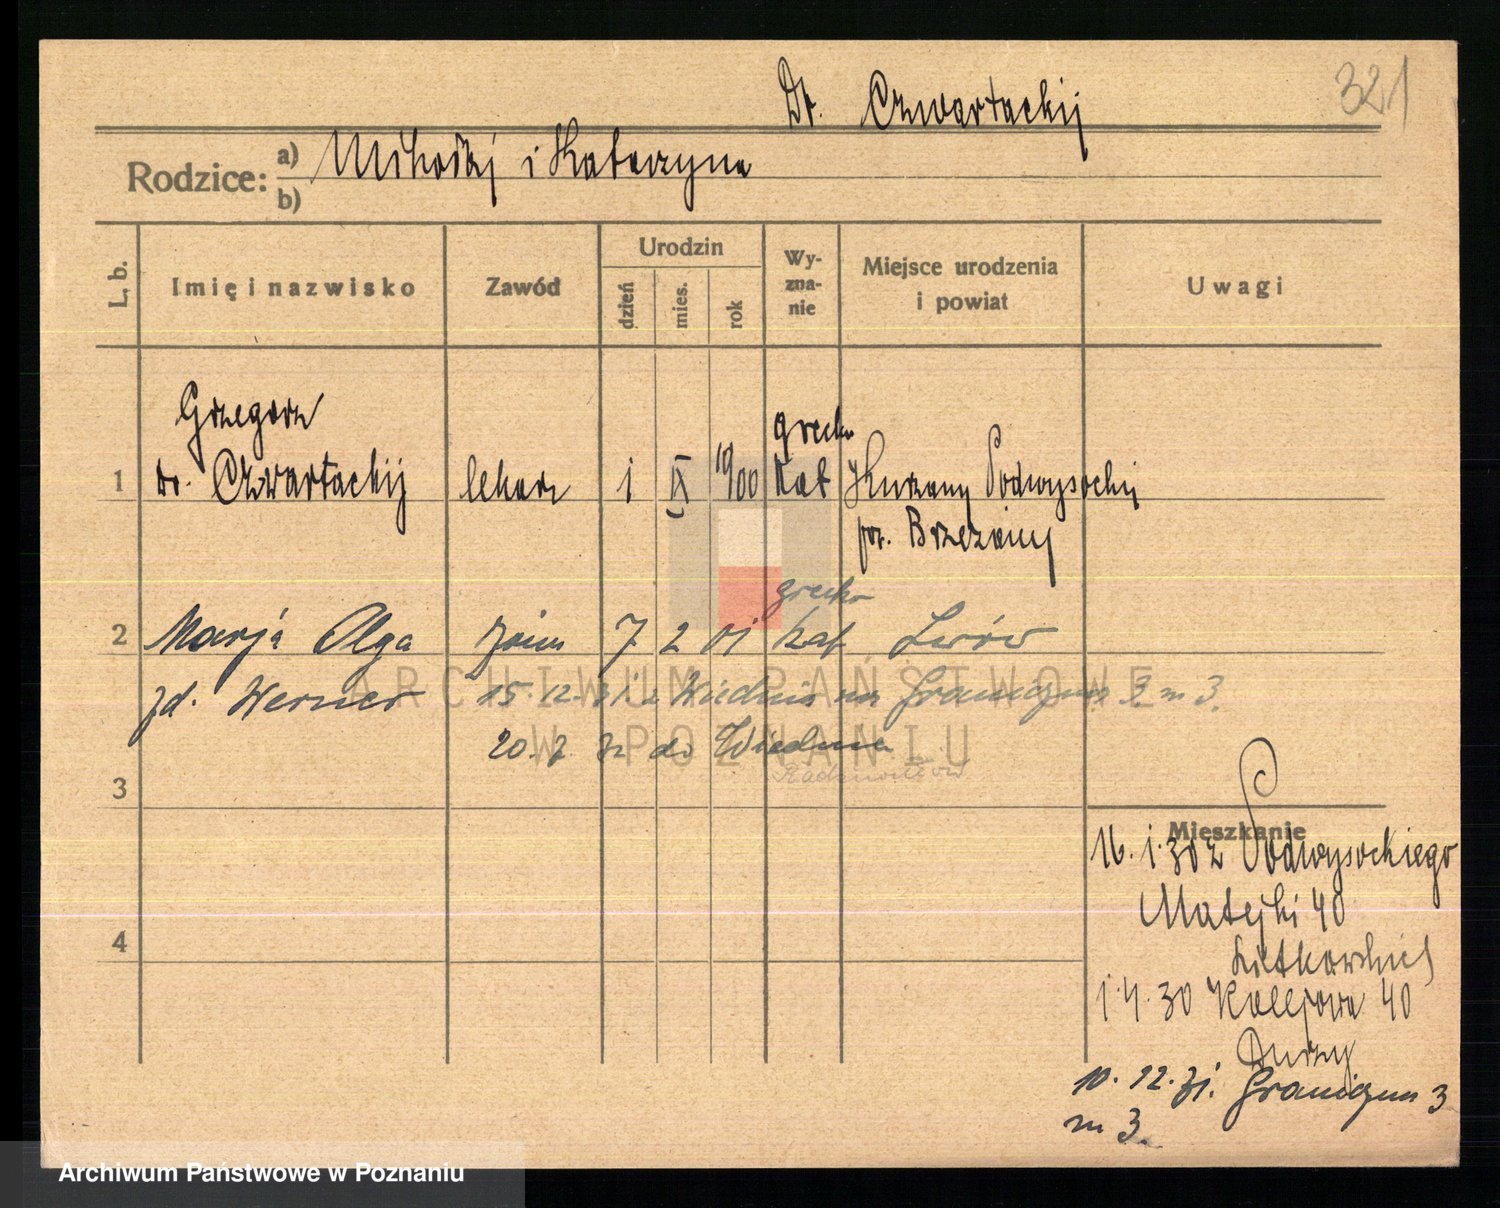 321
Dr. Czwartackij
Rodzice: a) Mikołaj i Katarzyna
b)
L. b.
Imię i nazwisko
Zawód
Urodzin
dzień
mies.
rok
Wy-
zna-
nie
Miejsce urodzenia
i powiat
Uwagi
Grzegorz
1 dr. Czwartackij lekarz 1 IX 1900 grecko kat Kurzany Podwysockij
pow. Brzeżany
2 Marja Olga żona 7 2 01 grecko kat Lwów
zd. Werner 15.12.31 z Wiednia na Graniczna 3 m 3.
20. 7 32 do Wiednia
3
Mieszkanie
16.1.30 z Podwysockiego
Matejki 40
4
1.4.30 Kolejowa 40
10.12.31. Graniczna 3
m 3.
ARCHIWUM PAŃSTWOWE
W POZNANIU
Archiwum Państwowe w Poznaniu